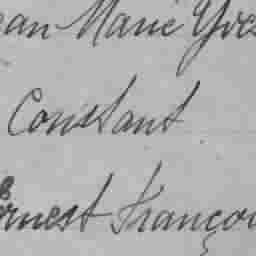 ean Marie Yves
Constant
Ernest Françoi